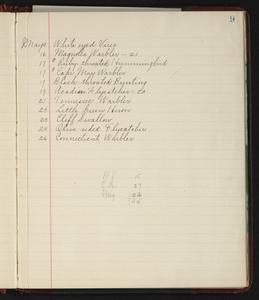 9
May 15 White eyed Vireo
16 Magnolia Warbler — 21
17 Ruby throated Hummingbird
17 Cape May Warbler
17 Black throated Bunting
19 Acadian Flycatcher — 20
21 Tennessee Warbler
22 Little Green Heron
23 Cliff Swallow
25 Olive sided Flycatcher
26 Connecticut Warbler
27
May